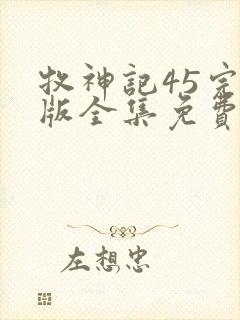 牧神記45完
版全集免費
左想忠